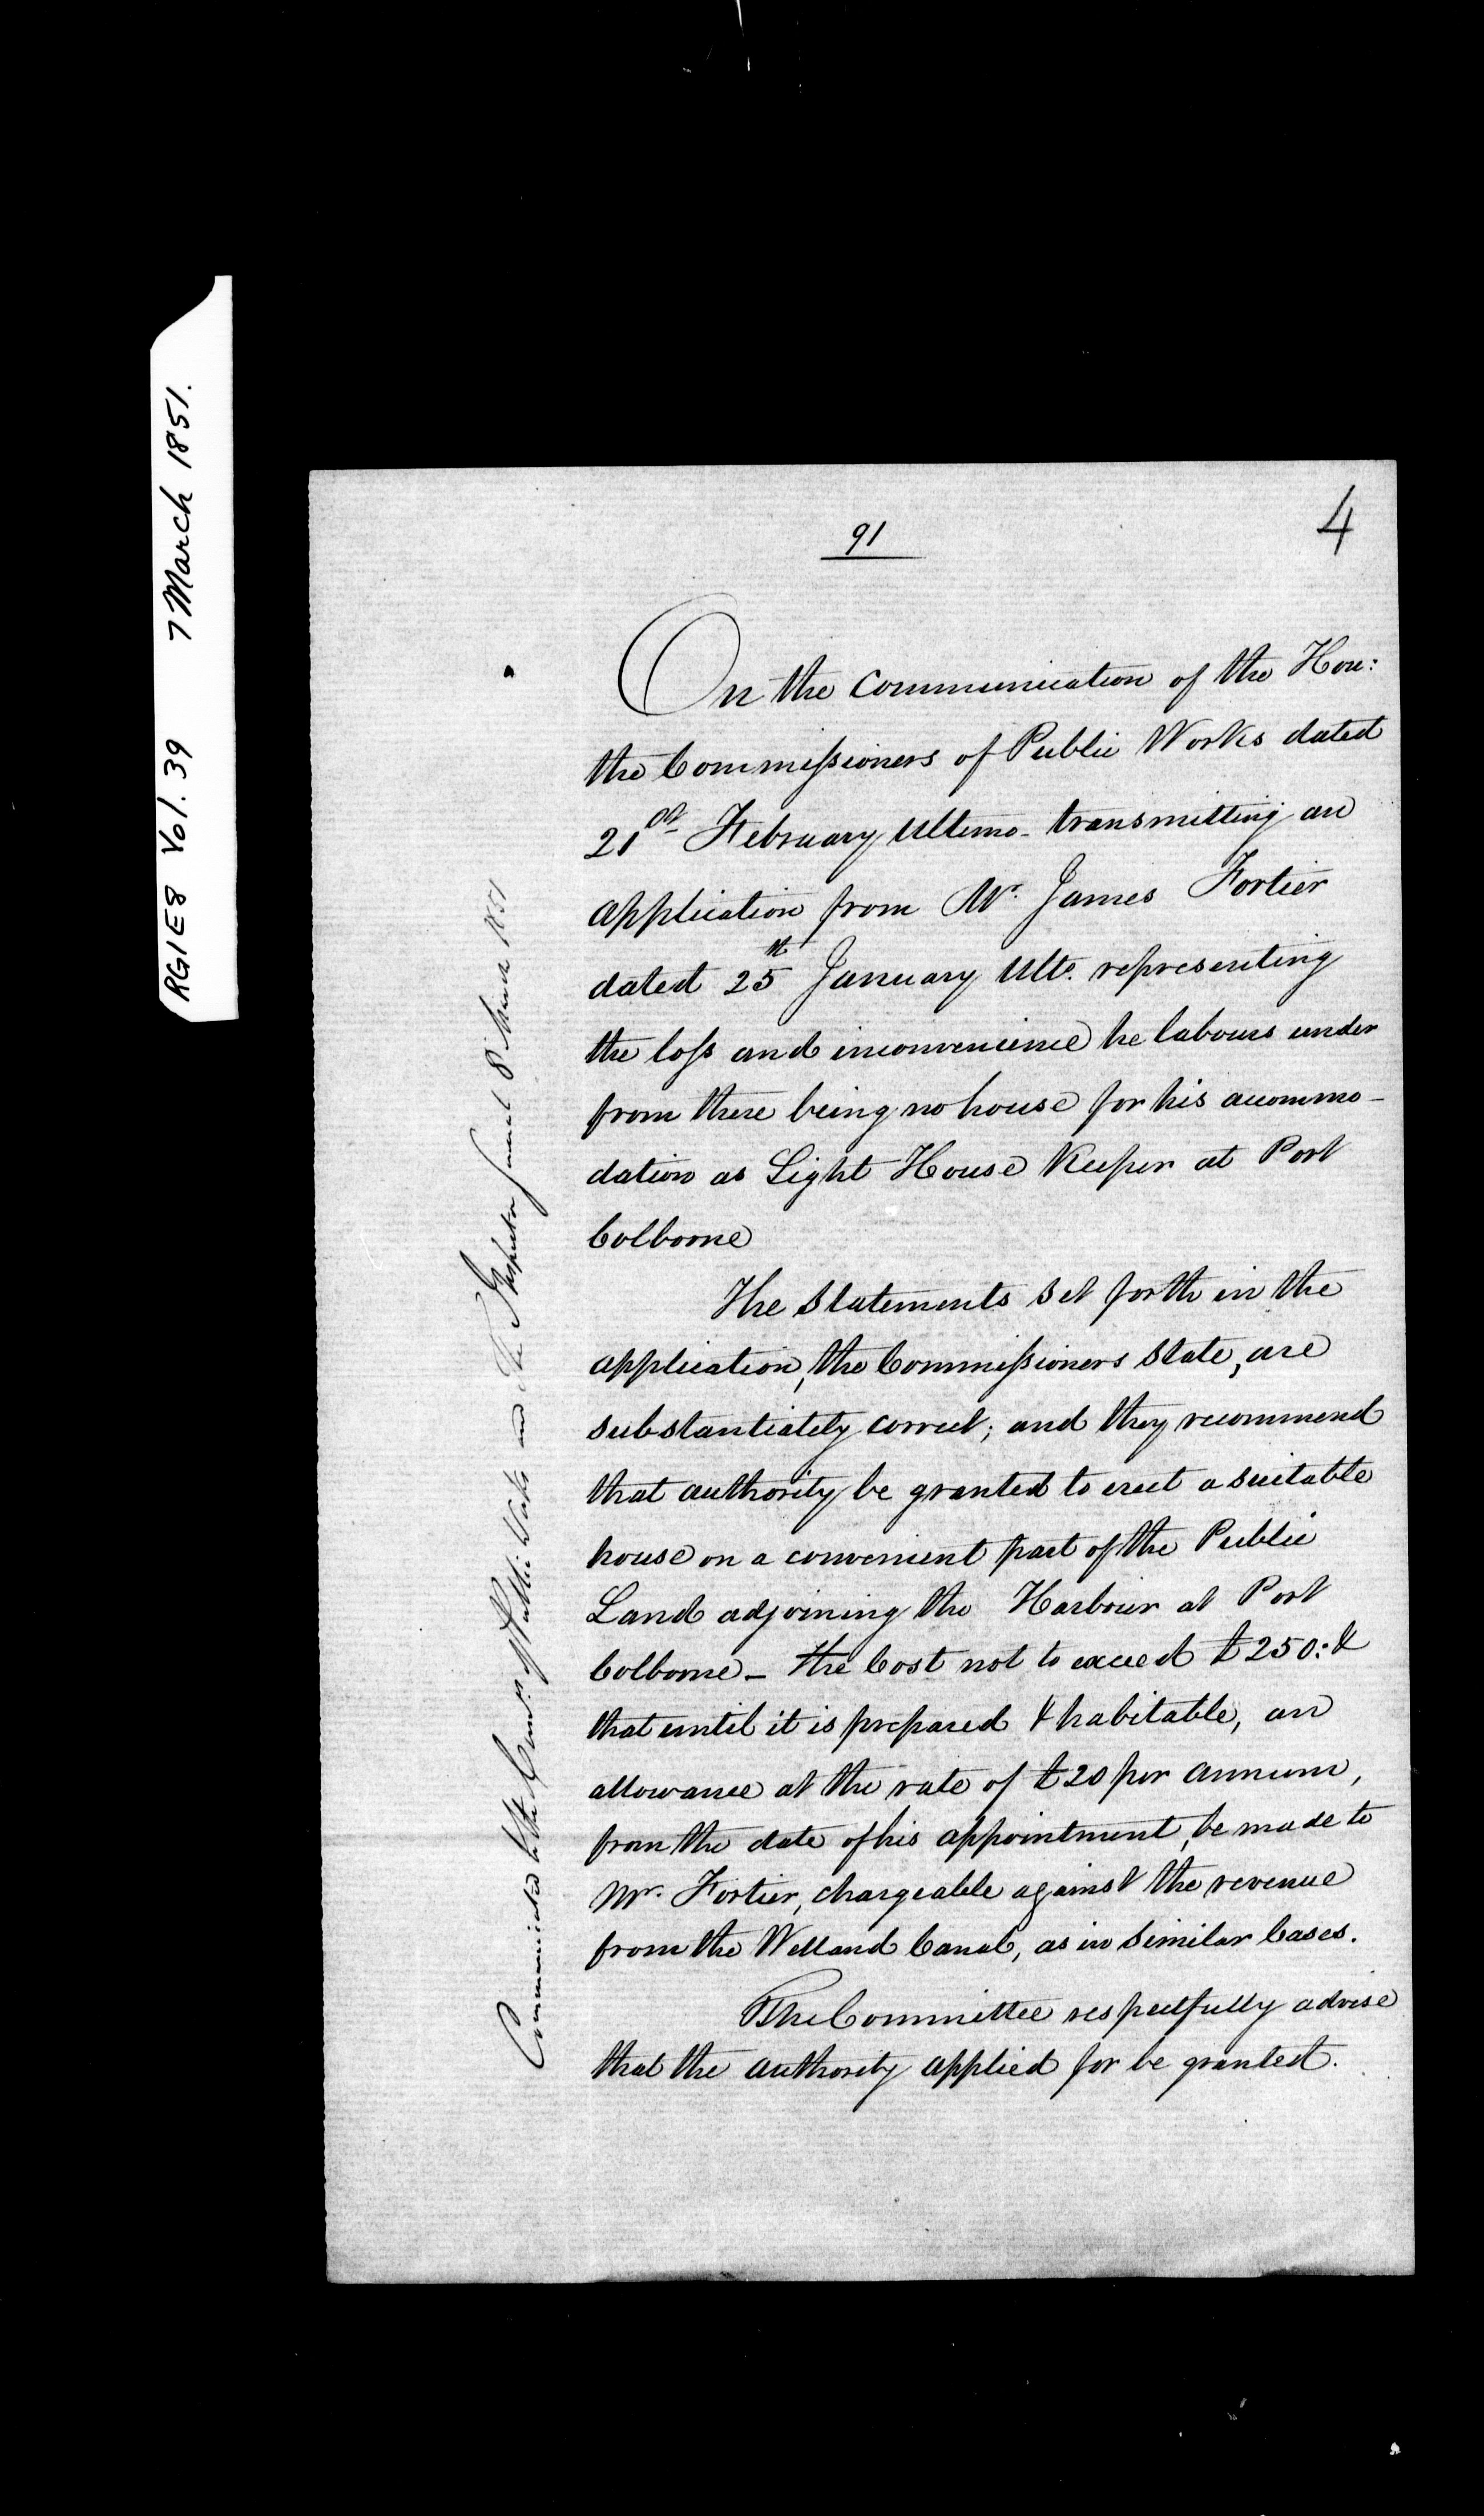 RG1E8 Vol. 39 7 March 1851.
91
4
On the Communication of the Hon:
the Commissioners of Public Works dated
21st February Ultimo - transmitting an
application from Mr. James Fortier
dated 25th January Ulto. representing
the loss and inconvenience he labours under
from there being no house for his accommo-
dation as Light House Keeper at Port
Colborne
The Statements set forth in the
application, the Commissioners State, are
substantiately correct; and they recommend
that authority be granted to erect a suitable
house on a convenient part of the Public
Land adjoining the Harbour at Port
Colborne - the Cost not to exceed £250: &
that until it is prepared & habitable, an
allowance at the rate of £20 per annum,
from the date of his appointment, be made to
Mr. Fortier, chargeable against the revenue
from the Welland Canal, as in Similar Cases.
The Committee respectfully advise
that the authority applied for be granted.
Communicated to the Comrs. of Public Works and The Inspector General 8 March 1851